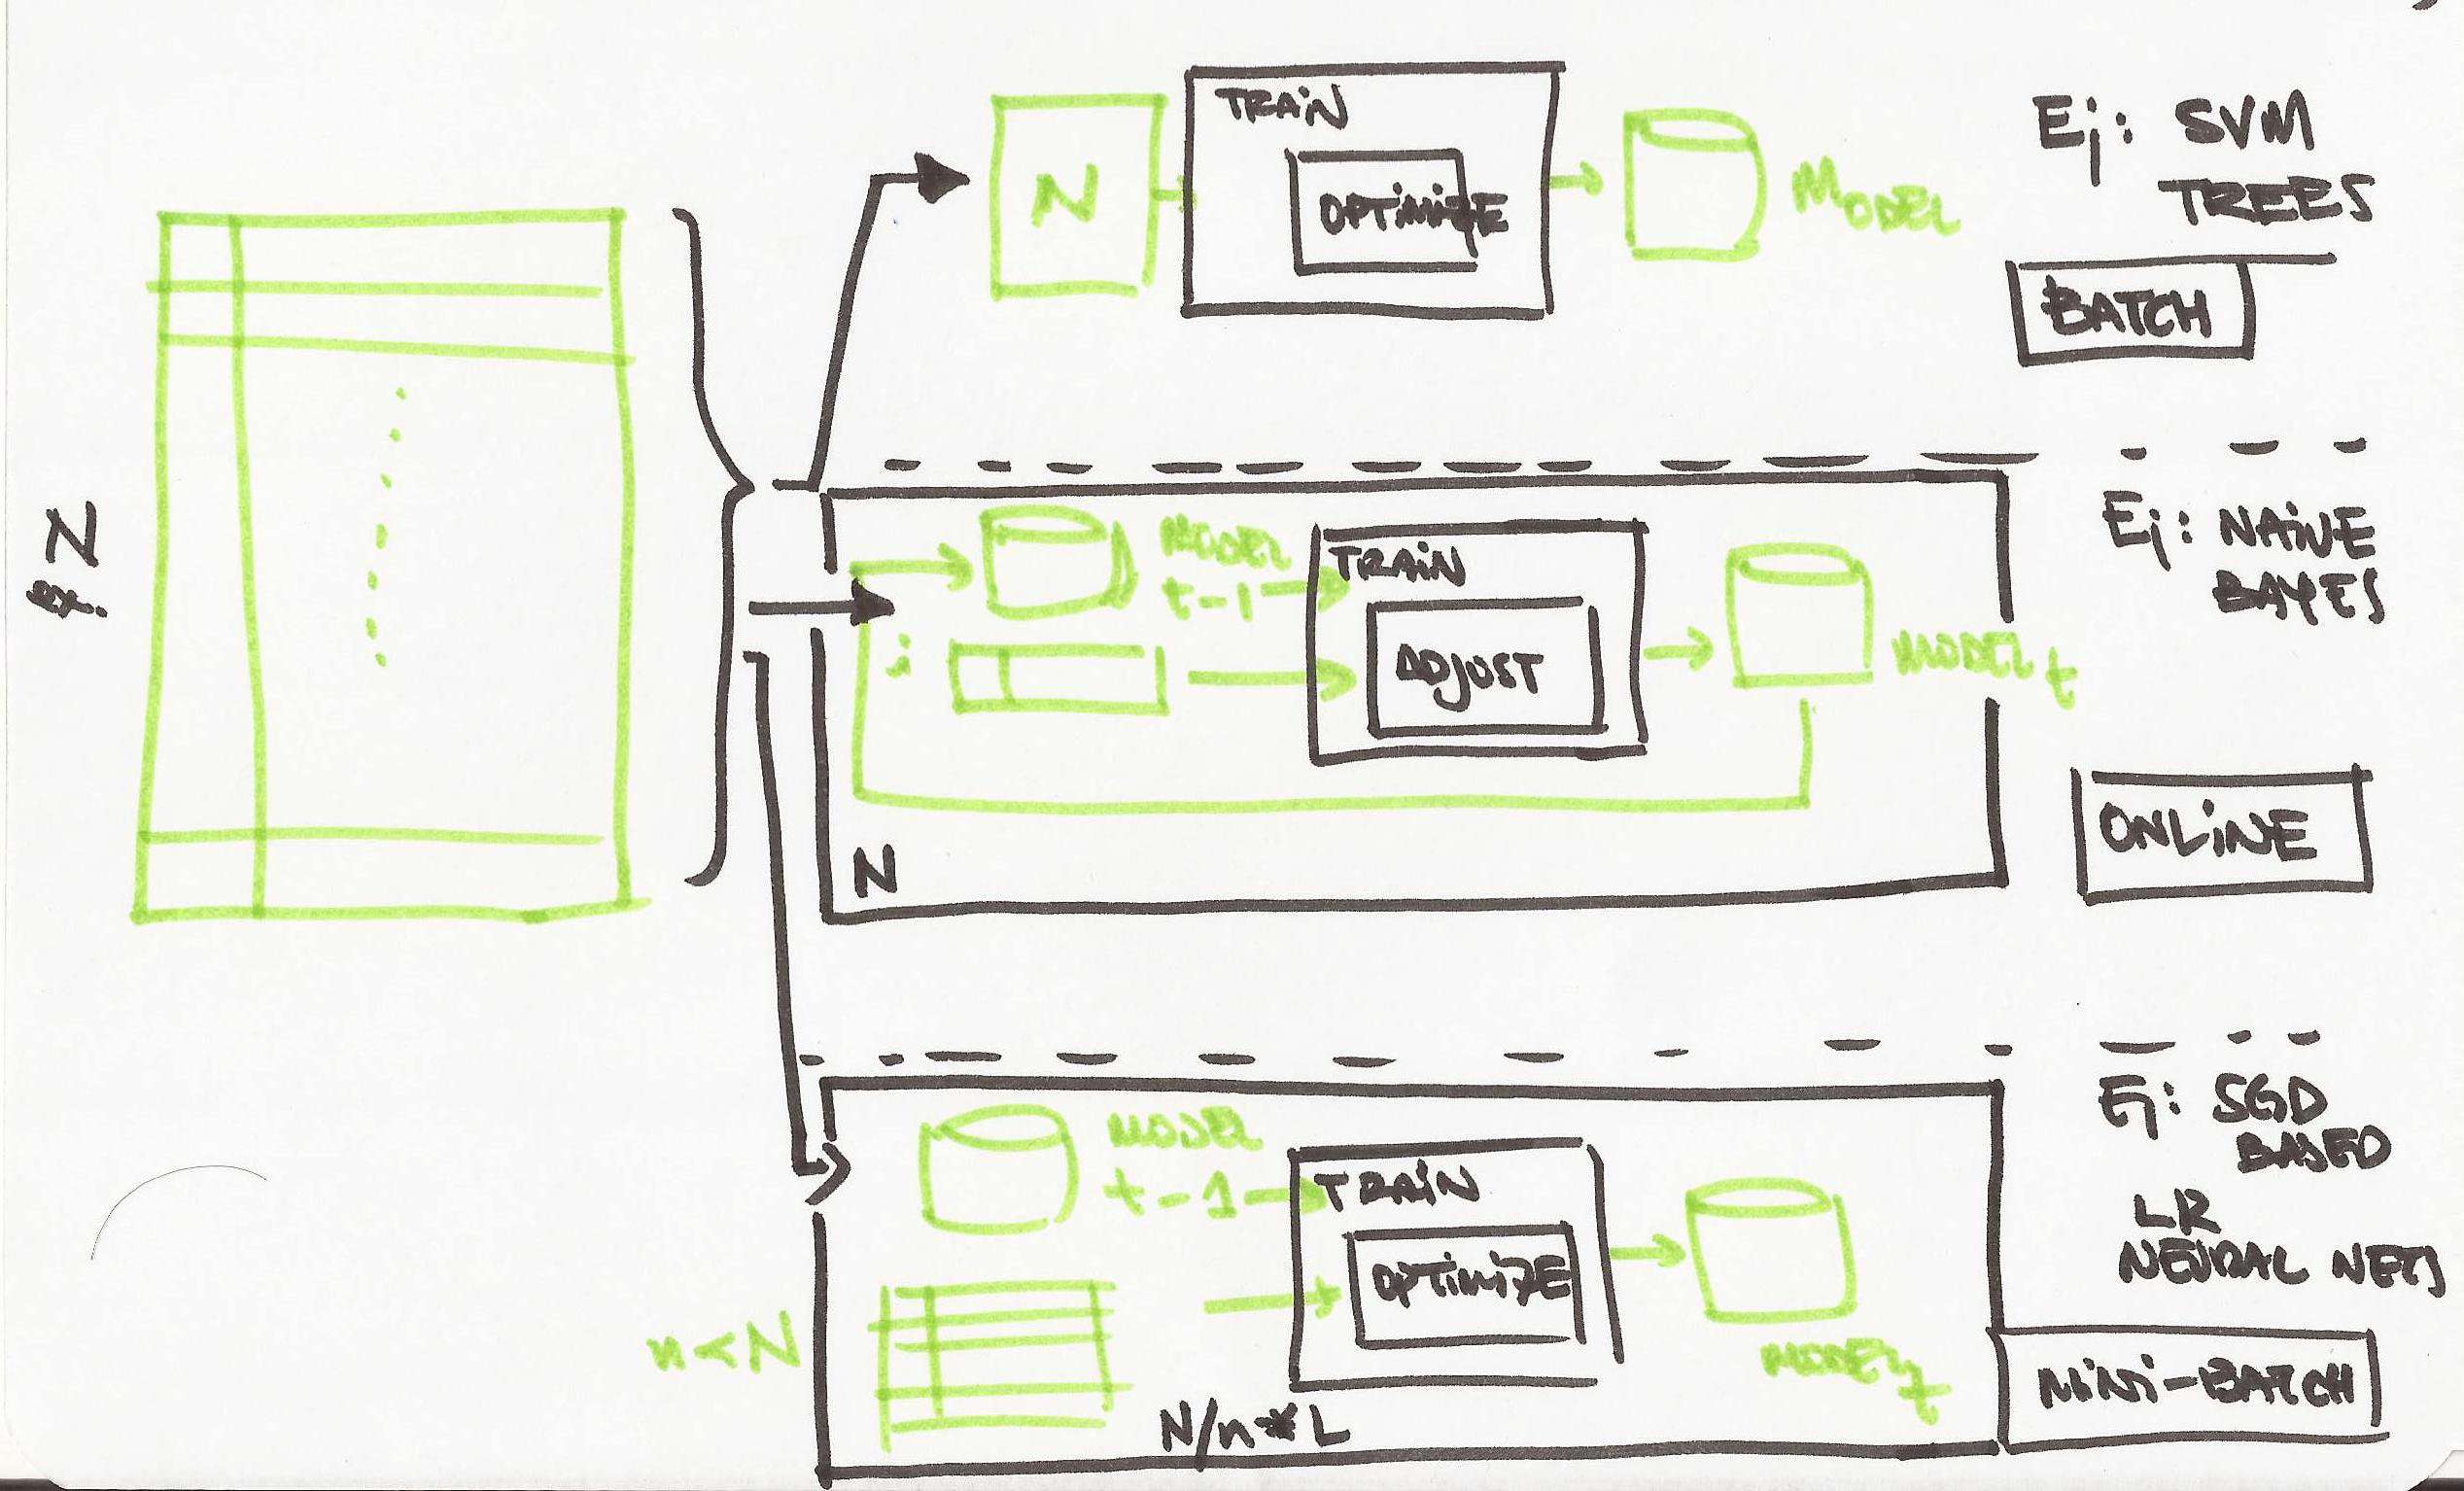 N
TRAIN
OPTIMIZE
MODEL
Ej: SVM
TREES
BATCH
# N
MODEL
t-1
i:
TRAIN
ADJUST
MODEL t
N
Ej: NAIVE
BAYES
ONLINE
MODEL
t-1
n<N
TRAIN
OPTIMIZE
MODEL t
N/n*L
Ej: SGD
BASED
LR
NEURAL NETS
MINI-BATCH